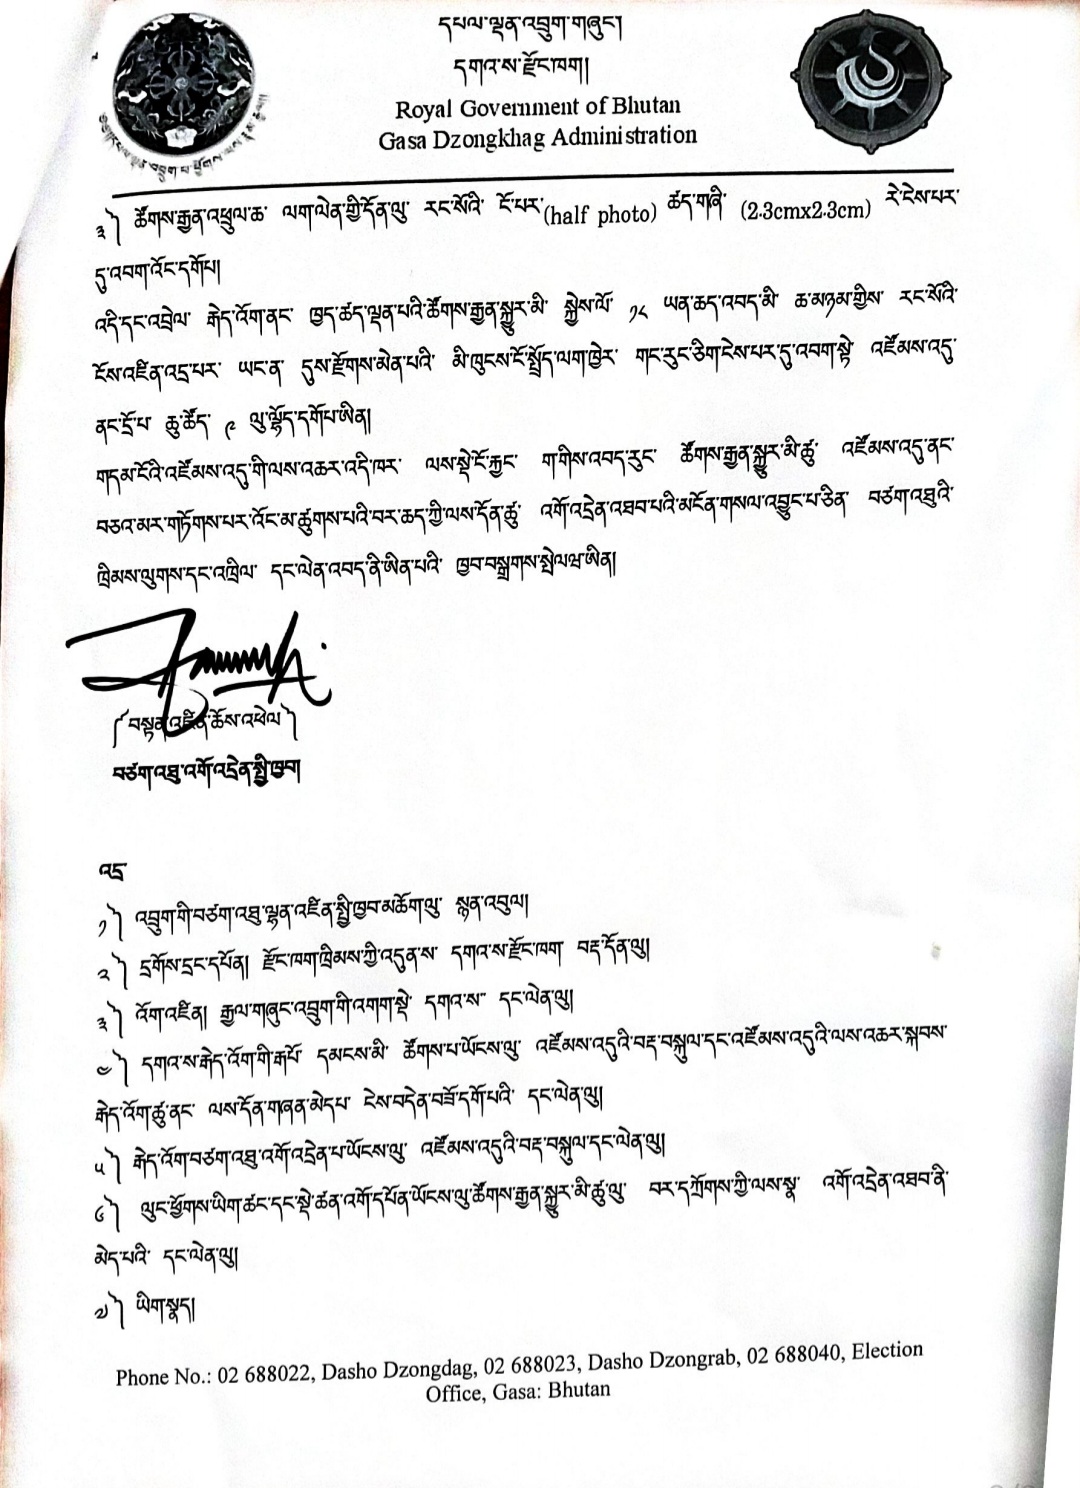 དཔལ་ལྡན་འབྲུག་གཞུང༌།
དགའ་ས་རྫོང་ཁག།
Royal Government of Bhutan
Gasa Dzongkhag Administration
༣༽ ཚོགས་རྒྱན་འཕྲུལ་ཆ་ ལག་ལེན་གྱི་དོན་ལུ་ རང་སོའི་ ངོ་པར་(half photo) ཚད་གཞི་ (2.3cmx2.3cm) རེ་ངེས་པར་
དུ་འབག་འོང་དགོཔ།
འདི་དང་འབྲེལ་ རྒེད་འོག་ནང་ ཁྱད་ཚད་ལྡན་པའི་ཚོགས་རྒྱན་སྐྱུར་མི་ སྐྱེས་ལོ་ ༡༨ ཡན་ཆད་འབད་མི་ ཆ་མཉམ་གྱིས་ རང་སོའི་
ངོས་འཛིན་འདྲ་པར་ ཡང་ན་ དུས་རྫོགས་མེན་པའི་ མི་ཁུངས་ངོ་སྤྲོད་ལག་ཁྱེར་ གང་རུང་ཅིག་ངེས་པར་དུ་འབག་སྟེ་ འཛོམས་འདུ་
ནང་དྲོ་པ་ ཆུ་ཚོད་ ༩ ལུ་ལྷོད་དགོཔ་ཨིན།
གདམ་ངོའི་འཛོམས་འདུ་གི་ལས་འཆར་འདི་ཁར་ ལས་སྡེ་ངོ་རྐྱང་ ག་གིས་འབད་རུང་ ཚོགས་རྒྱན་སྐྱུར་མི་ཚུ་ འཛོམས་འདུ་ནང་
བཅའ་མར་གཏོགས་པར་འོང་མ་ཚུགས་པའི་བར་ཆད་ཀྱི་ལས་དོན་ཚུ་ འགོ་འདྲེན་འཐབ་པའི་མངོན་གསལ་འབྱུང་པ་ཅིན་ བཙག་འཐུའི་
ཁྲིམས་ལུགས་དང་འཁྲིལ་ དང་ལེན་འབད་ནི་ཨིན་པའི་ ཁྱབ་བསྒྲགས་སྤེལཝ་ཨིན།
༼བསྟན་འཛིན་ཆོས་འཕེལ༽
བཙག་འཐུ་འགོ་འདྲེན་སྤྱི་ཁྱབ།
འདྲ
༡༽ འབྲུག་གི་བཙག་འཐུ་ལྷན་འཛིན་སྤྱི་ཁྱབ་མཆོག་ལུ་ སྙན་འབུལ།
༢༽ དྲགོས་དྲང་དཔོན། རྫོང་ཁག་ཁྲིམས་ཀྱི་འདུན་ས་ དགའ་ས་རྫོང་ཁག བརྡ་དོན་ལུ།
༣༽ འོག་འཛིན། རྒྱལ་གཞུང་འབྲུག་གི་འགག་སྡེ་ དགའ་ས་ དང་ལེན་ལུ།
༤༽ དགའ་ས་རྒེད་འོག་གི་རྒཔོ་ དམངས་མི་ ཚོགས་པ་ཡོངས་ལུ་ འཛོམས་འདུའི་བརྡ་བསྐུལ་དང་འཛོམས་འདུའི་ལས་འཆར་སྐབས་
རྒེད་འོག་ཚུ་ནང་ ལས་དོན་གཞན་མེདཔ་ ངེས་བདེན་བཟོ་དགོ་པའི་ དང་ལེན་ལུ།
༥༽ རྒེད་འོག་བཙག་འཐུ་འགོ་འདྲེན་པ་ཡོངས་ལུ་ འཛོམས་འདུའི་བརྡ་བསྐུལ་དང་ལེན་ལུ།
༦༽ ལུང་ཕྱོགས་ཡིག་ཚང་དང་སྡེ་ཚན་འགོ་དཔོན་ཡོངས་ལུ་ཚོགས་རྒྱན་སྐྱུར་མི་ཚུ་ལུ་ བར་དཀྲོགས་ཀྱི་ལས་སྣ་ འགོ་འདྲེན་འཐབ་ནི་
མེད་པའི་ དང་ལེན་ལུ།
༧༽ ཡིག་སྣད།
Phone No.: 02 688022, Dasho Dzongdag, 02 688023, Dasho Dzongrab, 02 688040, Election
Office, Gasa: Bhutan